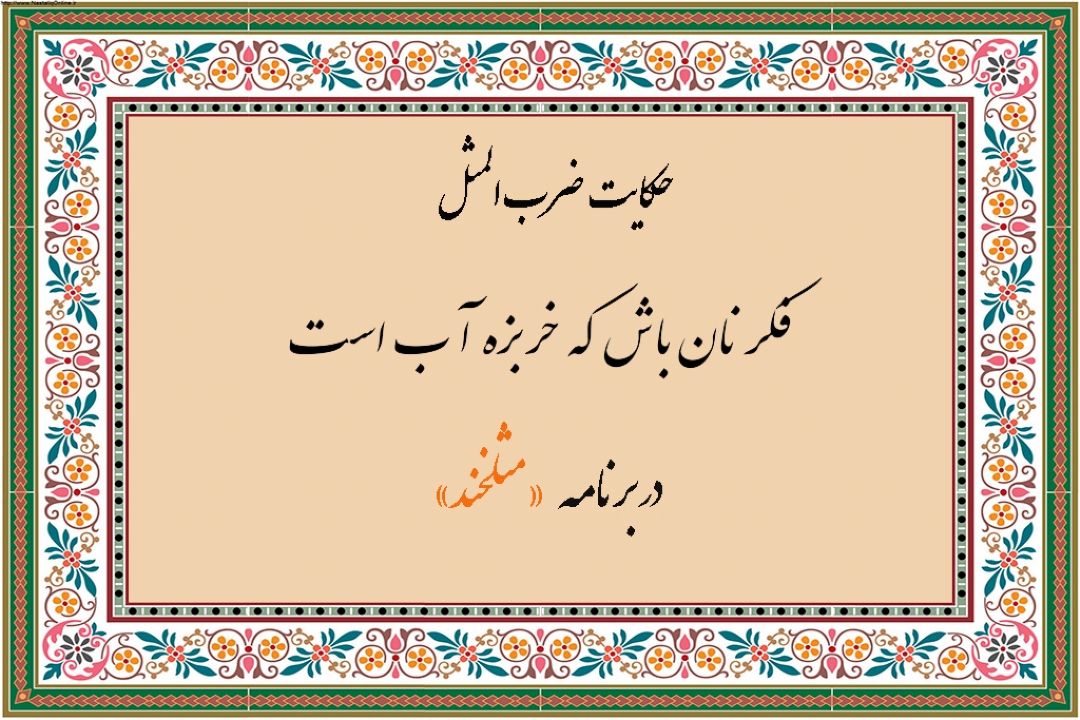 http://www.NastaliqOnline.ir
حکایت ضرب المثل
فکر نان باش که خربزه آب است
در برنامه « مثلخند»